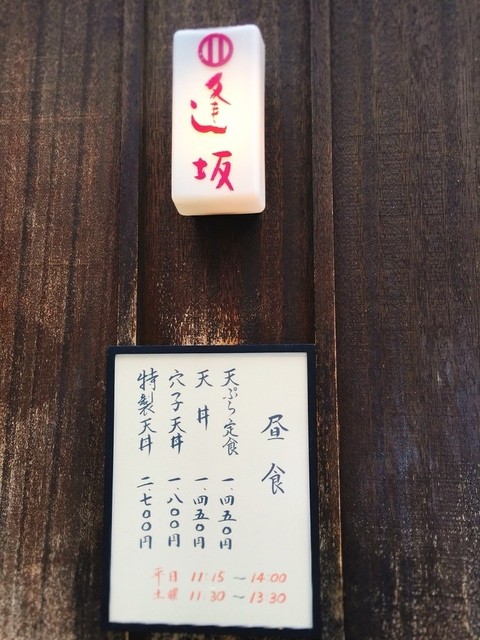 逢坂
昼食
天ぷら定食 一、四五〇円
天丼 一、四五〇円
穴子天丼 一、八〇〇円
特製天丼 二、七〇〇円
平日 11:15 〜 14:00
土曜 11:30 〜 13:30